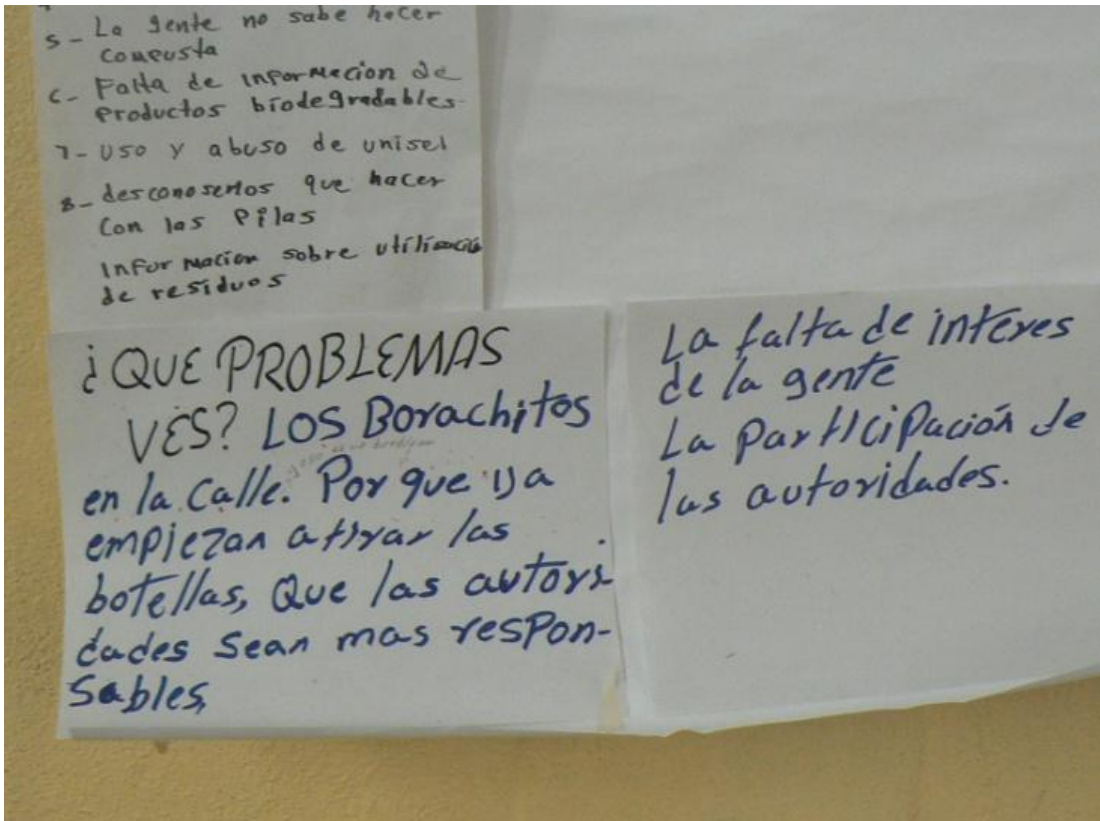 5- La gente no sabe hacer
compusta
6- Falta de informacion de
productos biodegradables
7- uso y abuso de unisel
8- desconosemos que hacer
con las pilas
informacion sobre utilización
de residuos
¿QUE PROBLEMAS
VES? LOS Borachitos
en la calle. Por que ya
empiezan atirar las
botellas, Que las autori
dades sean mas respon-
sables,
La falta de interes
de la gente
La participación de
las autoridades.